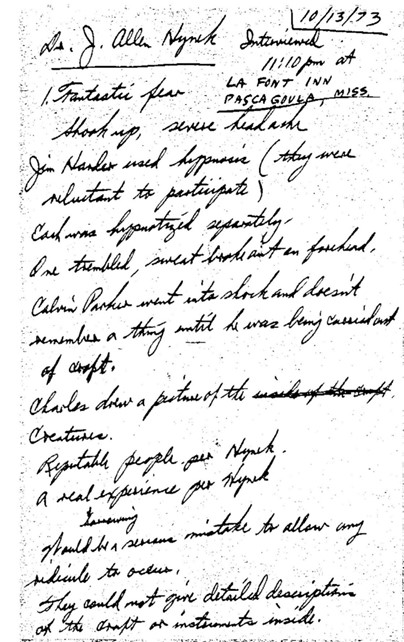 10/13/73
Dr. J. Allen Hynek Interviewed
11:10 pm at
LA FONT INN
PASCAGOULA, MISS.
1. Fantastic fear
shook up, severe headache
Jim Harder used hypnosis (they were
reluctant to participate)
Each was hypnotized separately.
One trembled, sweat broke out on forehead.
Calvin Parker went into shock and doesn't
remember a thing until he was being carried out
of craft.
Charles drew a picture of the inside of the craft.
Creatures.
Reputable people per Hynek.
A real experience per Hynek
Would be a serious mistake to allow any
ridicule to occur.
They could not give detailed descriptions
of the craft or instruments inside.